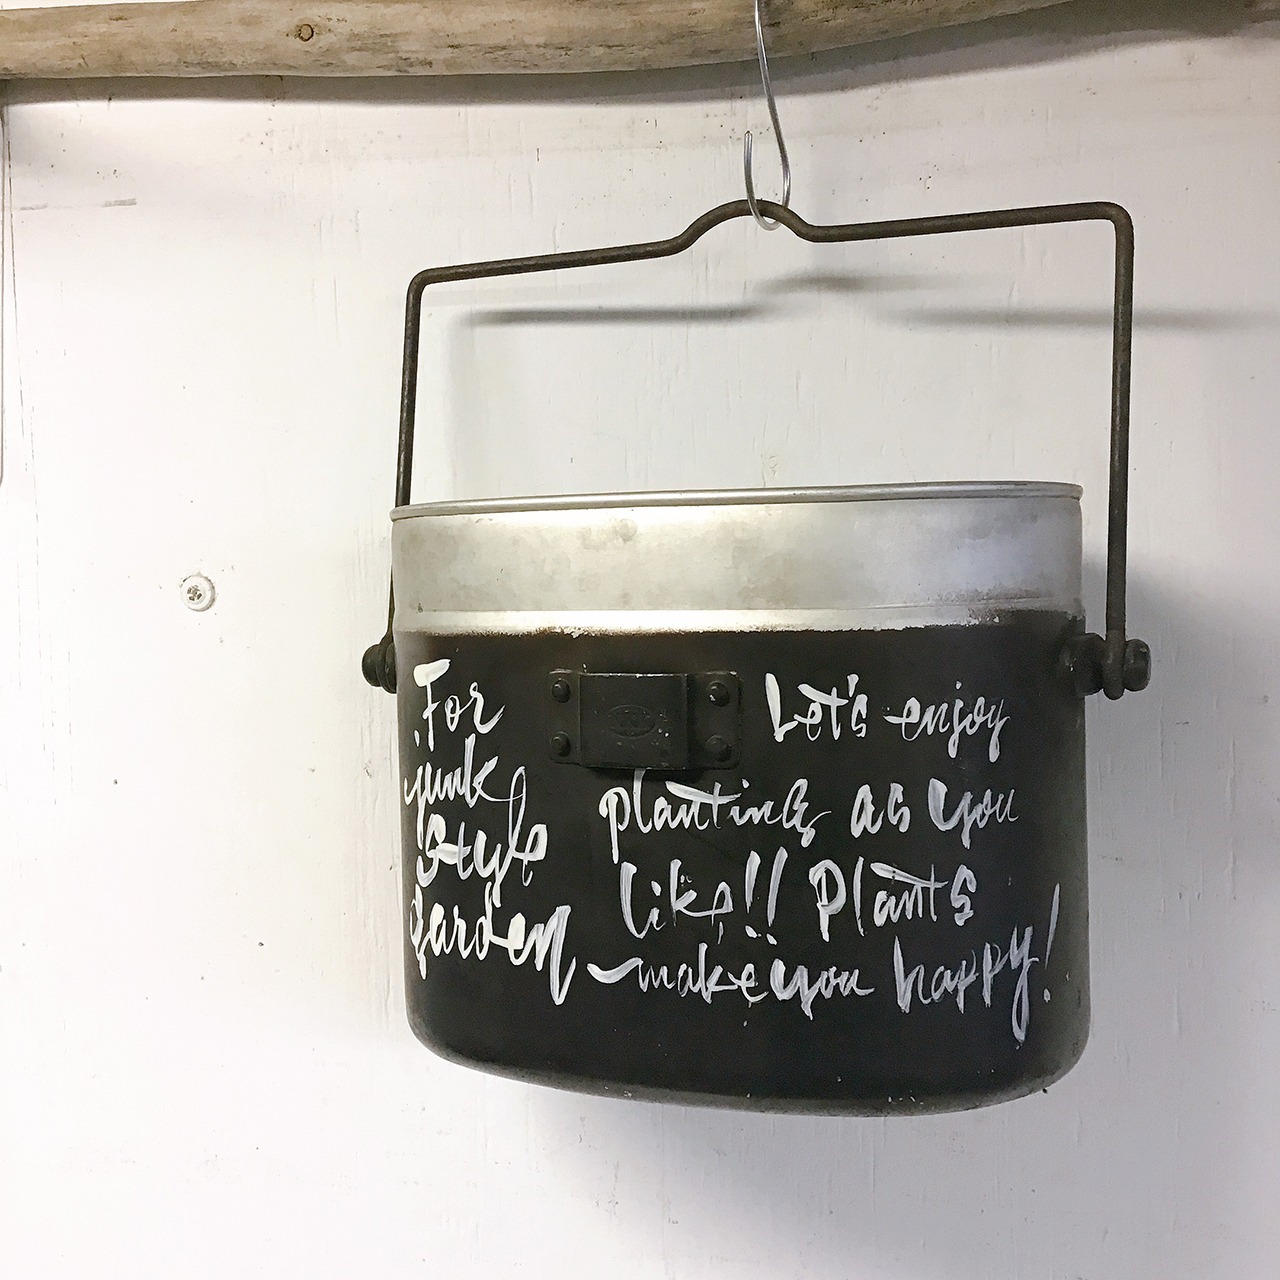 For
junk
style
garden
Let's enjoy
planting as you
like!! Plants
make you happy!